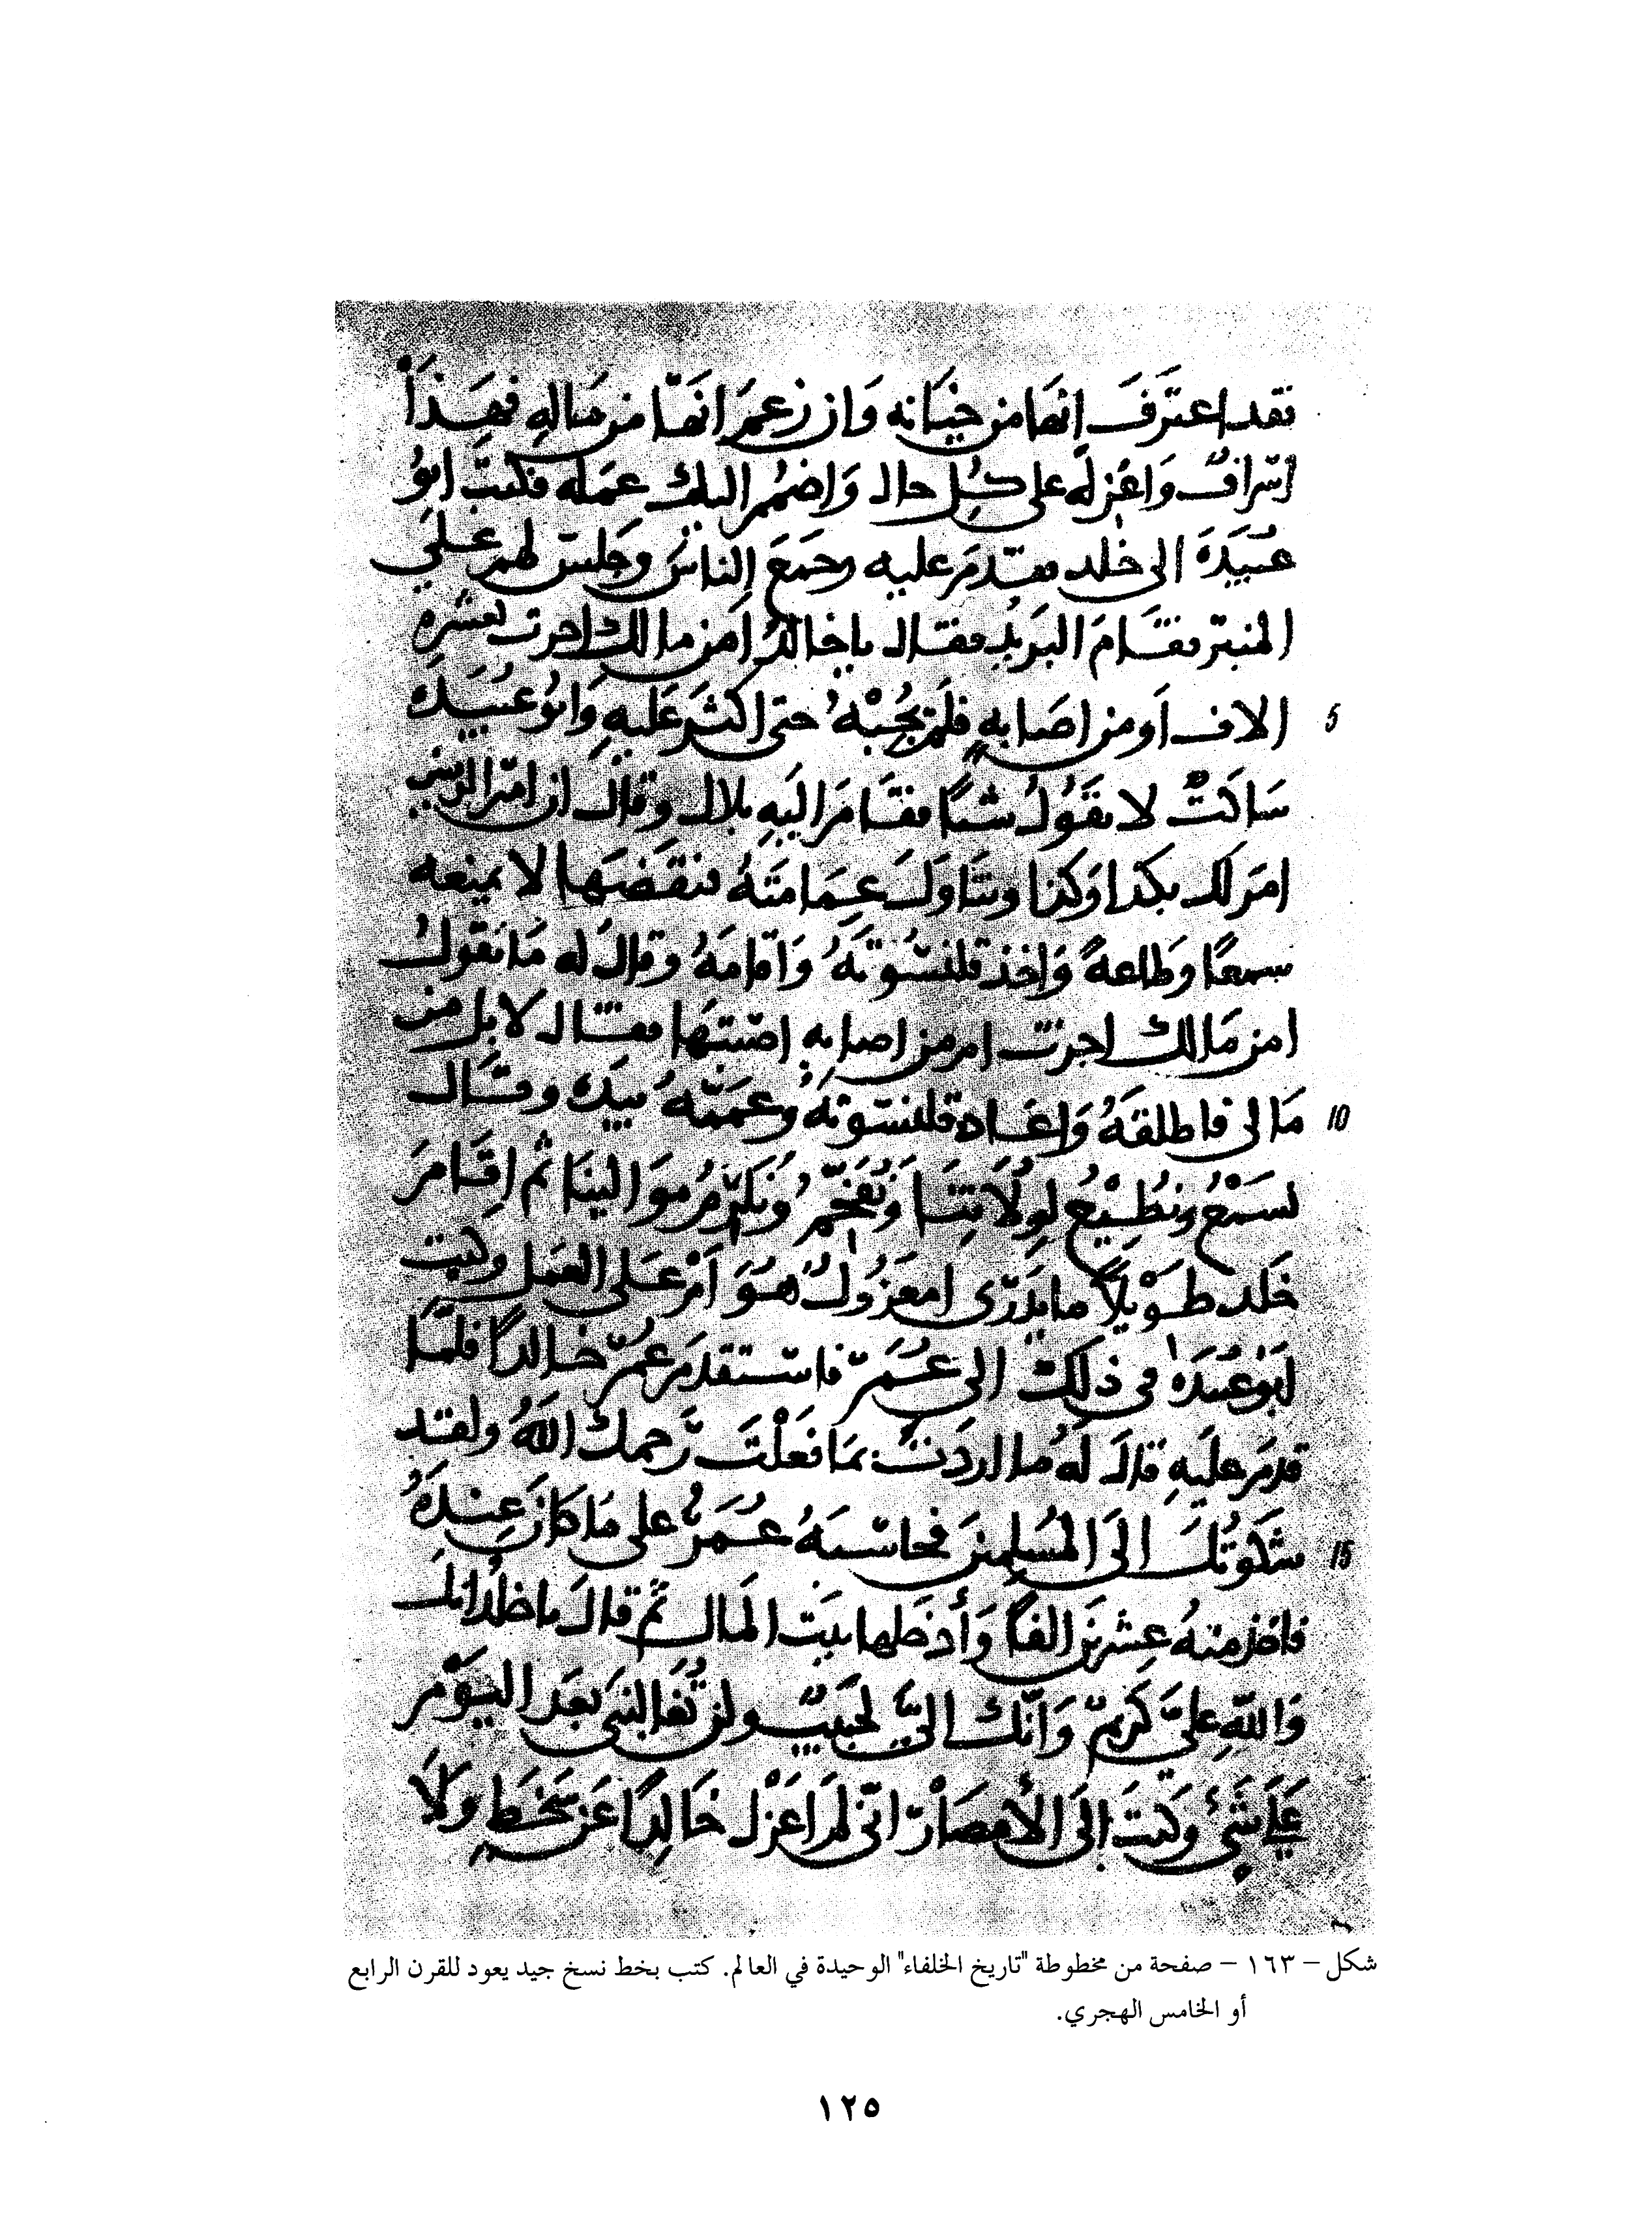 فقد اعترف انها من خيانه وَان زعم انهَا من ماله فهذا
اسراف وَاعزله على كل حال وَاضمم اليك عمله فكتب ابو
عبيدَة الى خلد فقدم عليه وجمع الناس وجلس لهم على
المنبر فقام البريد فقال ياخالد امن مالك اجزت بعشره
الاف اَو من اصابه فلم يجبه حتى اكثر عليه وَابو عبيده
سَاكت لا يقول شيئا فقام اليه بلال وقال ان امير المومنين
امر لك بكذا وكذا وتناول عمامته فنقضها لا يمنعه
سمعًا وطاعةً وَاخذ قلنسوته وَاقامه وقال له مَا تقول
امن مَالك اجزت ام من اصابه اصبتها فقال لا بل من
مَالي فاطلقه وَاعاد قلنسوته وعممه بيده وقال
نسمع ونطيع لولاتنا ونفخم ونكرم موالينا ثم اقام
خلد طويلاً ما يدرى امعزول هو اَم على العمل وكتب
ابو عبيده في ذلك الى عمر فاستقدم عمر خالدًا فلما
قدم عليه قال له ما اردت بما فعلت رحمك الله ولقد
شكوتك الى المسلمين فحاسبه عمر على مَا كان عنده
فاخذ منه عشرين الفًا وَأدخلها بيت المال ثم قال يا خلد انك
وَالله علىّ كريم وَانك اليّ لحبيب ولن تعاتبني بعد اليوم
على شيء وكتب إلى الأمصار اني لم اعزل خالدًا عن سخط ولا
5
10
15
شكل – ١٦٣ – صفحة من مخطوطة "تاريخ الخلفاء" الوحيدة في العالم. كتب بخط نسخ جيد يعود للقرن الرابع
أو الخامس الهجري.
١٢٥